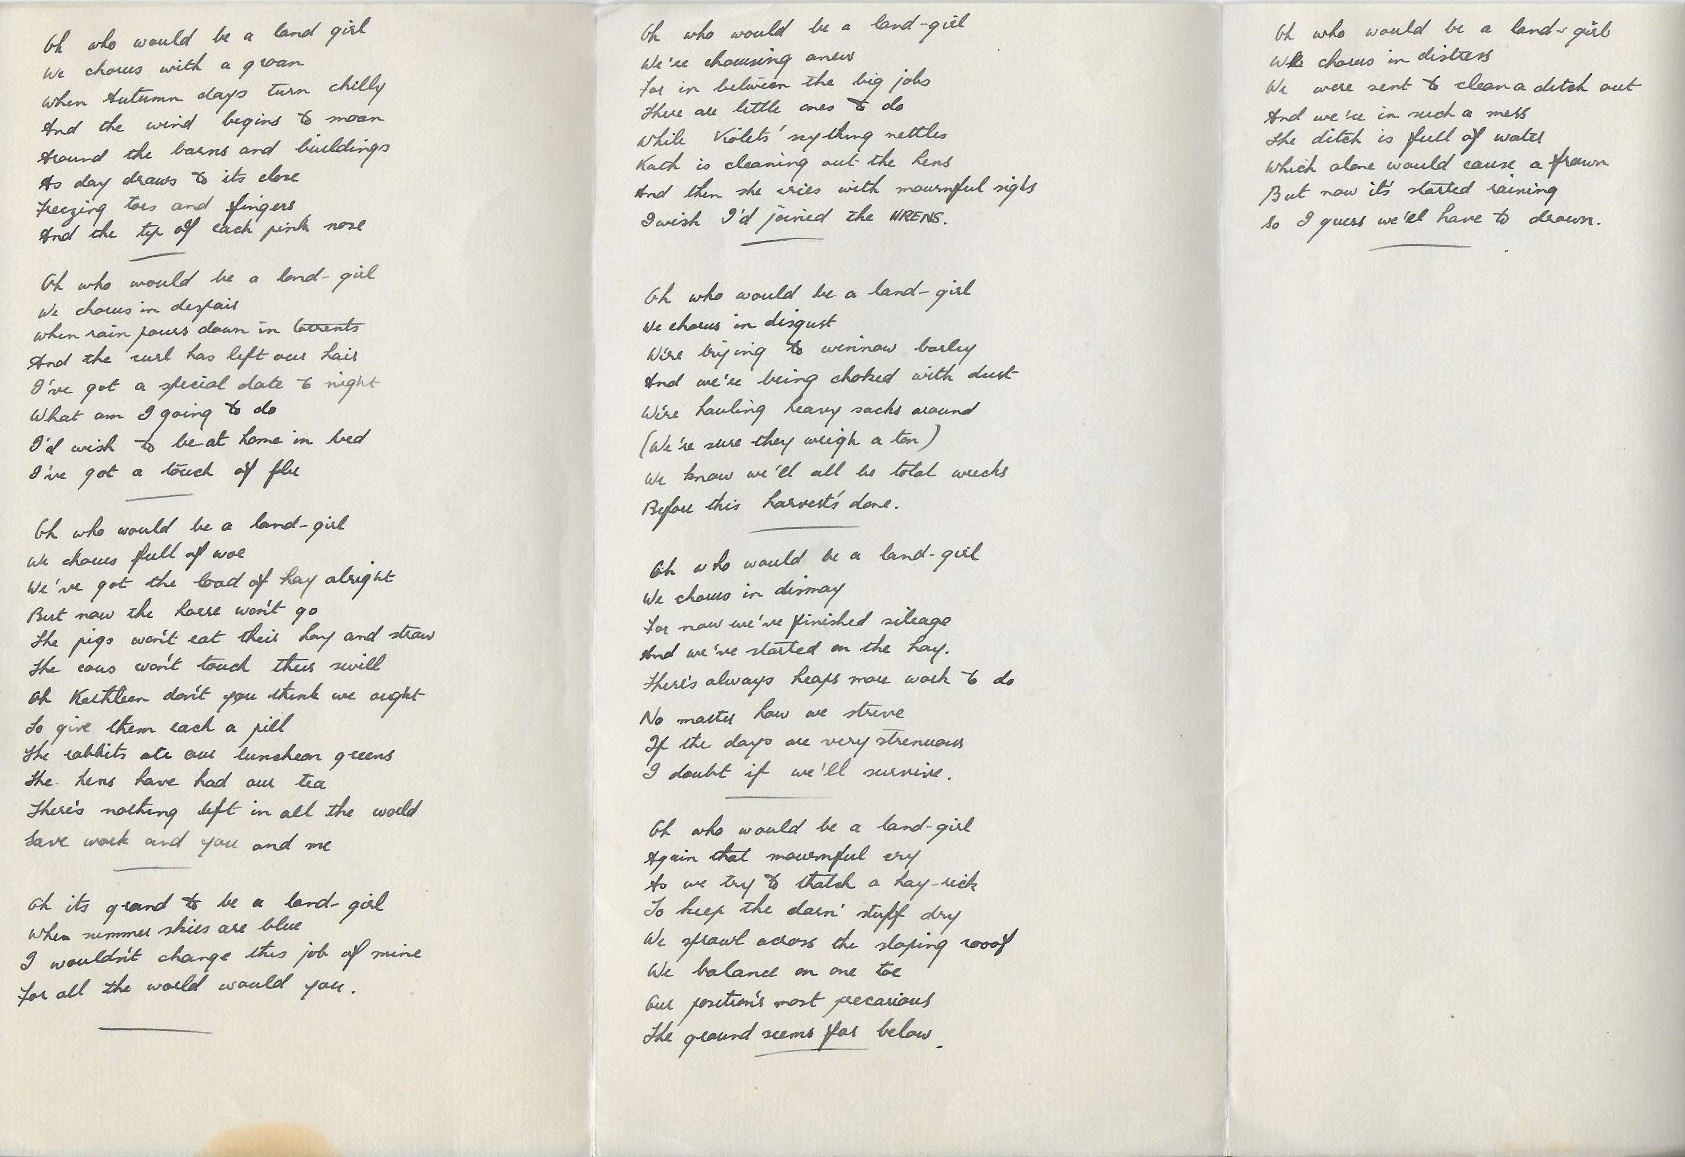 Oh who would be a land girl
We chorus with a groan
When Autumn days turn chilly
And the wind begins to moan
Around the barns and buildings
As day draws to its close
Freezing toes and fingers
And the tip of each pink nose
Oh who would be a land-girl
We chorus in despair
When rain pours down in torrents
And the curl has left our hair
I've got a special date to night
What am I going to do
I'd wish to be at home in bed
I've got a touch of flu
Oh who would be a land-girl
We chorus full of woe
We've got the load of hay alright
But now the horse won't go
The pigs won't eat their hay and straw
The cows won't touch their swill
Oh Kathleen don't you think we ought
To give them each a pill
The rabbits ate our luncheon greens
The hens have had our tea
There's nothing left in all the world
Save work and you and me
Oh its grand to be a land-girl
When summer skies are blue
I wouldn't change this job of mine
For all the world would you.
Oh who would be a land-girl
We're chorusing anew
For in between the big jobs
There are little ones to do
While Violets' scything nettles
Kath is cleaning out the hens
And then she cries with mournful sighs
I wish I'd joined the WRENS.
Oh who would be a land-girl
We chorus in disgust
We're trying to winnow barley
And we're being choked with dust
We're hauling heavy sacks around
(We're sure they weigh a ton)
We know we'll all be total wrecks
Before this harvest's done.
Oh who would be a land-girl
We chorus in dismay
For now we've finished sileage
And we've started on the hay.
There's always heaps more work to do
No matter how we strive
If the days are very strenuous
I doubt if we'll survive.
Oh who would be a land-girl
Again that mournful cry
As we try to thatch a hay-rick
To keep the darn' stuff dry
We sprawl across the sloping rooof
We balance on one toe
Our position's most precarious
The ground seems far below.
Oh who would be a land-girl
We chorus in distress
We were sent to clean a ditch out
And we're in such a mess
The ditch is full of water
Which alone would cause a frown
But now it's started raining
So I guess we'll have to drown.